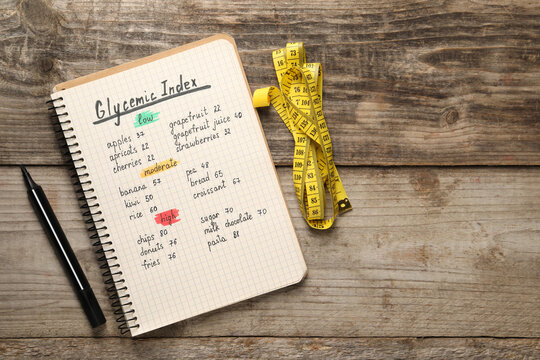 Glycemic Index
low
apples 37 grapefruit 22
apricots 22 grapefruit juice 40
cherries 22 strawberries 32
moderate
banana 57 pea 48
kiwi 50 bread 65
rice 60 croissant 67
high
chips 80 sugar 70
donuts 76 milk chocolate 70
fries 76 pasta 81